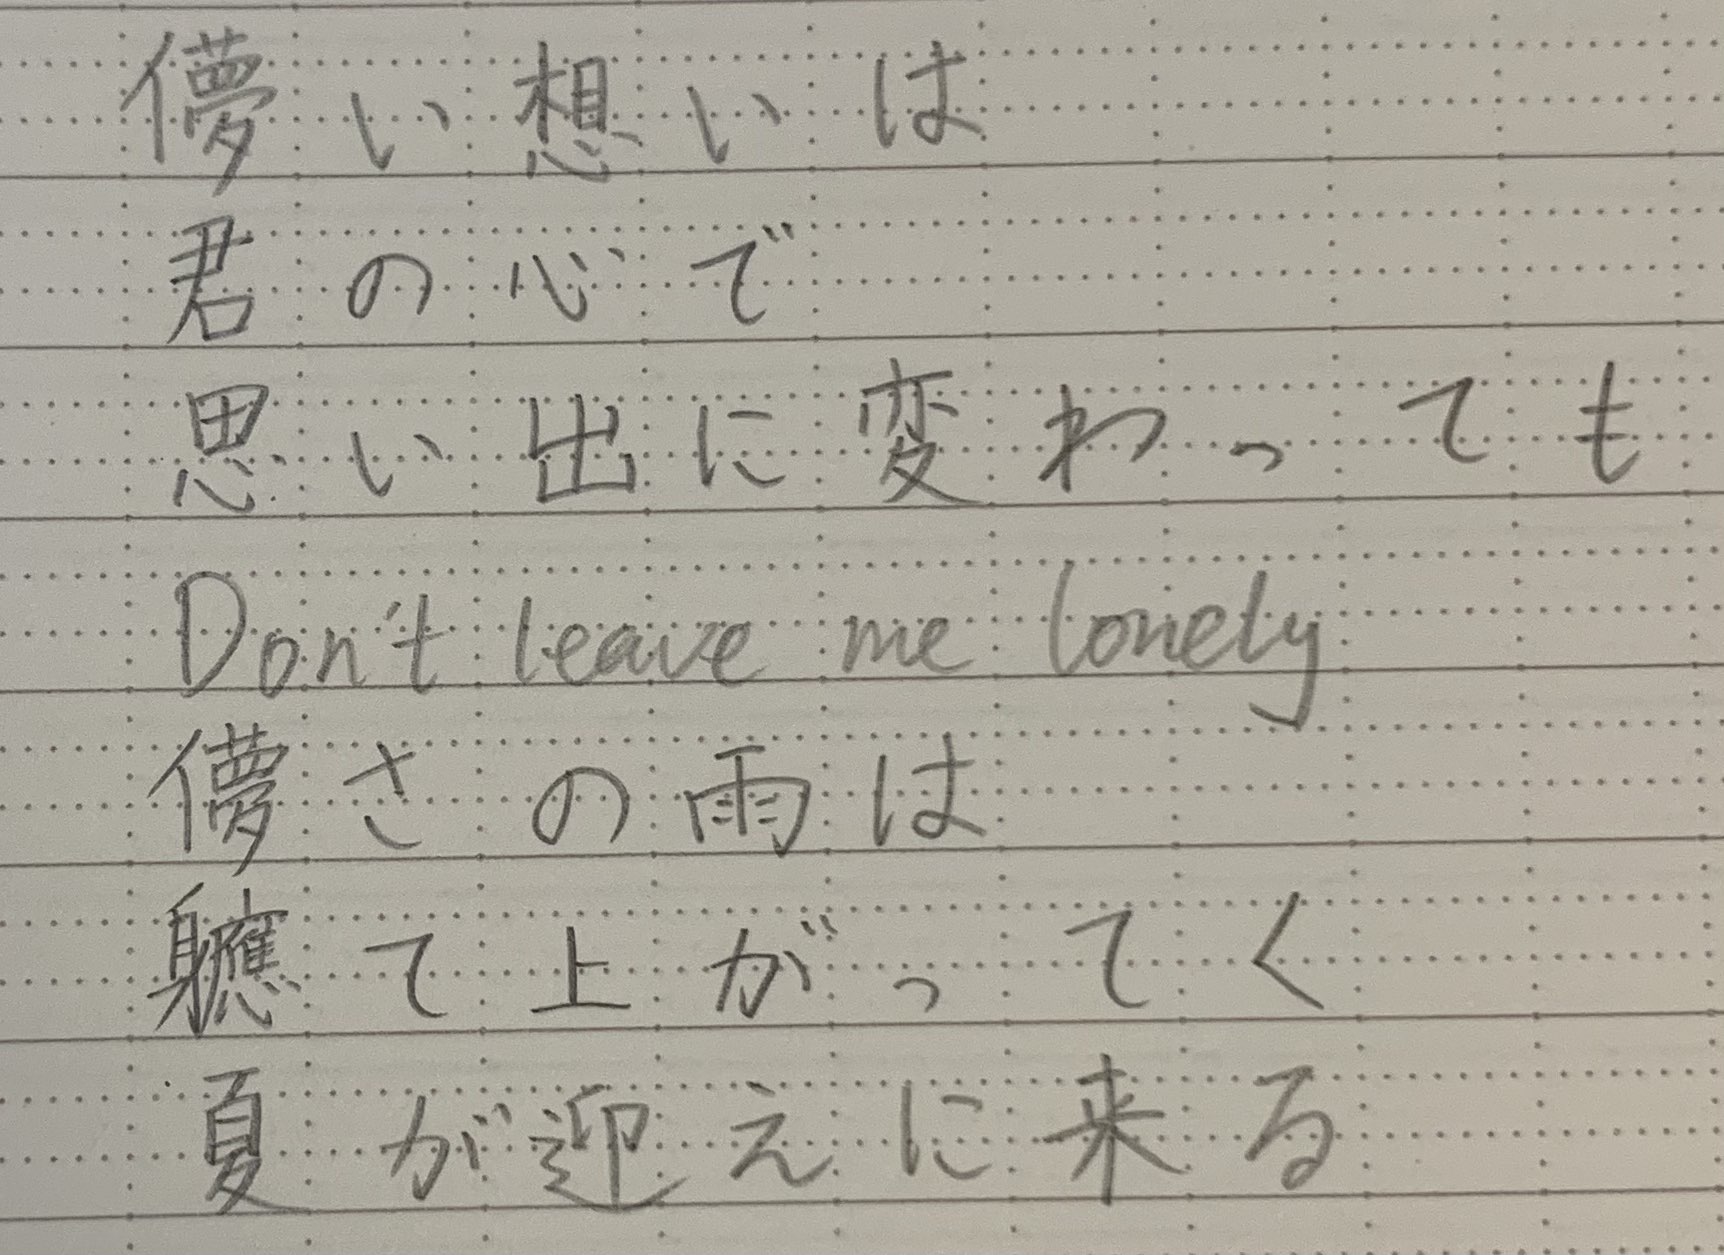 儚い想いは
君の心で
思い出に変わっても
Don't leave me lonely
儚さの雨は
軈て上がってく
夏が迎えに来る